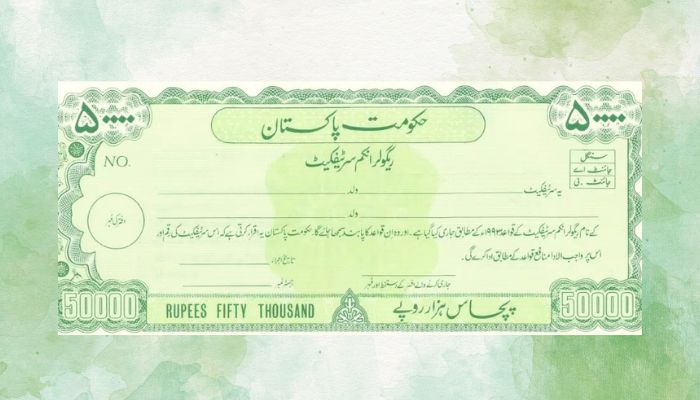 ۵۰۰۰۰ حکومت پاکستان ۵۰۰۰۰
ریگولر انکم سرٹیفکیٹ
NO.
سنگل
جائنٹ اے
جائنٹ بی
یہ سرٹیفکیٹ ولد
ولد
کے نام ریگولر انکم سرٹیفکیٹ کے قواعد ۱۹۹۳ء کے مطابق جاری کیا گیا ہے۔ اور وہ ان قواعد کا پابند سمجھا جائے گا۔ حکومت پاکستان یہ اقرار کرتی ہے کہ اس سرٹیفکیٹ کی رقم اور
اس پر واجب الادا منافع قواعد کے مطابق ادا کرے گی۔
دفتر کی مہر
تاریخ اجراء
جاری کرنے والے افسر کے دستخط اور مہر
رجسٹر نمبر
50000 RUPEES FIFTY THOUSAND پچاس ہزار روپے 50000